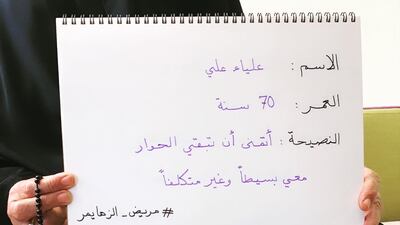 الاسم: علياء علي
العمر: 70 سنة
النصيحة: أتمنى أن تبقي الحوار
معي بسيطاً وغير متكلفاً
#مريض_الزهايمر